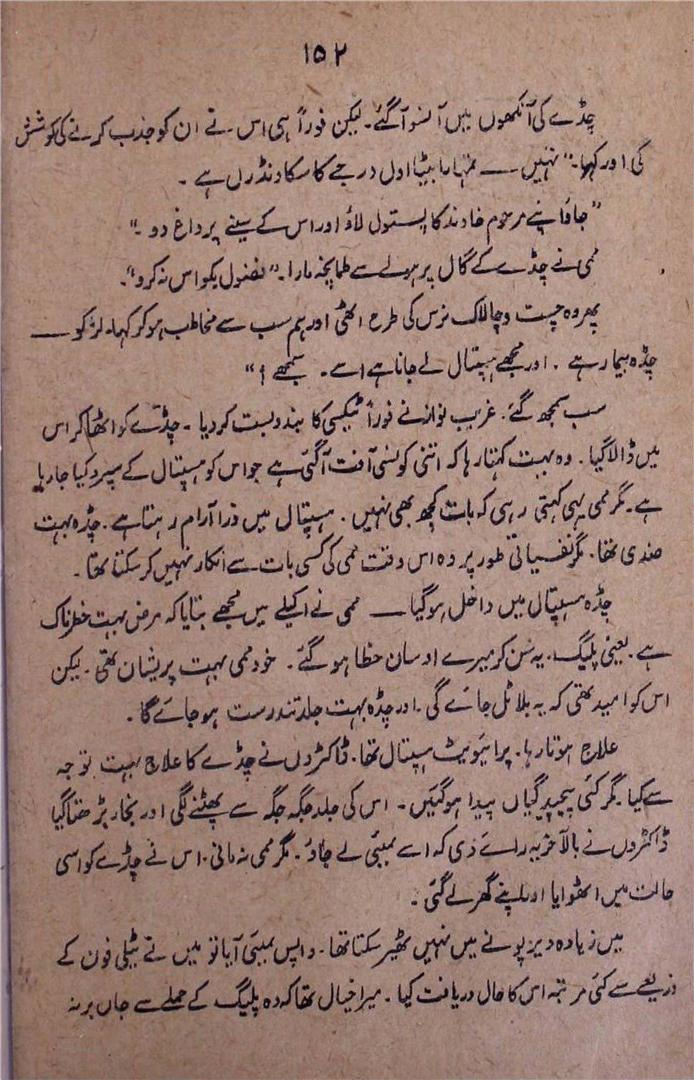 ۱۵۲
چڈے کی آنکھوں میں آنسو آگئے۔ لیکن فوراً ہی اس نے ان کو جذب کرنے کی کوشش
کی اور کہا۔ "نہیں ــــ تمہارا بیٹا اول درجے کا سکاونڈرل ہے۔
"جاؤ اپنے مرحوم خاوند کا پستول لاؤ اور اس کے سینے پر داغ دو۔"
ممی نے چڈے کے گال پر ہولے سے طمانچہ مارا۔ "فضول بکواس نہ کرو"۔
پھر وہ چست و چالاک نرس کی طرح اٹھی اور ہم سب سے مخاطب ہو کر کہا۔ لڑکو ــــ
چڈہ بیمار ہے۔ اور مجھے ہسپتال لے جانا ہے اسے۔ سمجھے؟"
سب سمجھ گئے۔ غریب نواز نے فوراً ٹیکسی کا بندوبست کر دیا۔ چڈے کو اٹھا کر اس
میں ڈالا گیا۔ وہ بہت کہتا رہا کہ اتنی کونسی آفت آگئی ہے جو اس کو ہسپتال کے سپرد کیا جا رہا
ہے۔ مگر ممی یہی کہتی رہی کہ بات کچھ بھی نہیں۔ ہسپتال میں ذرا آرام رہتا ہے۔ چڈہ بہت
ضدی تھا۔ مگر نفسیاتی طور پر وہ اس وقت ممی کی کسی بات سے انکار نہیں کر سکتا تھا۔
چڈہ ہسپتال میں داخل ہو گیا ــــ ممی نے اکیلے میں مجھے بتایا کہ مرض بہت خطرناک
ہے۔ یعنی پلیگ۔ یہ سن کر میرے اوسان خطا ہو گئے۔ خود ممی بہت پریشان تھی۔ لیکن
اس کو امید تھی کہ یہ بلا ٹل جائے گی۔ اور چڈہ بہت جلد تندرست ہو جائے گا۔
علاج ہوتا رہا۔ پرائیویٹ ہسپتال تھا۔ ڈاکٹروں نے چڈے کا علاج بہت توجہ
سے کیا۔ مگر کئی پیچیدگیاں پیدا ہو گئیں۔ اس کی جلد جگہ جگہ سے پھٹنے لگی اور بخار بڑھتا گیا
ڈاکٹروں نے بالآخر یہ رائے دی کہ اسے بمبئی لے جاؤ۔ مگر ممی نہ مانی۔ اس نے چڈے کو اسی
حالت میں اٹھوایا اور اپنے گھر لے گئی۔
میں زیادہ دیر پونے میں نہیں ٹھیر سکتا تھا۔ واپس بمبئی آیا تو میں نے ٹیلی فون کے
ذریعے سے کئی مرتبہ اس کا حال دریافت کیا۔ میرا خیال تھا کہ وہ پلیگ کے حملے سے جاں بر نہ